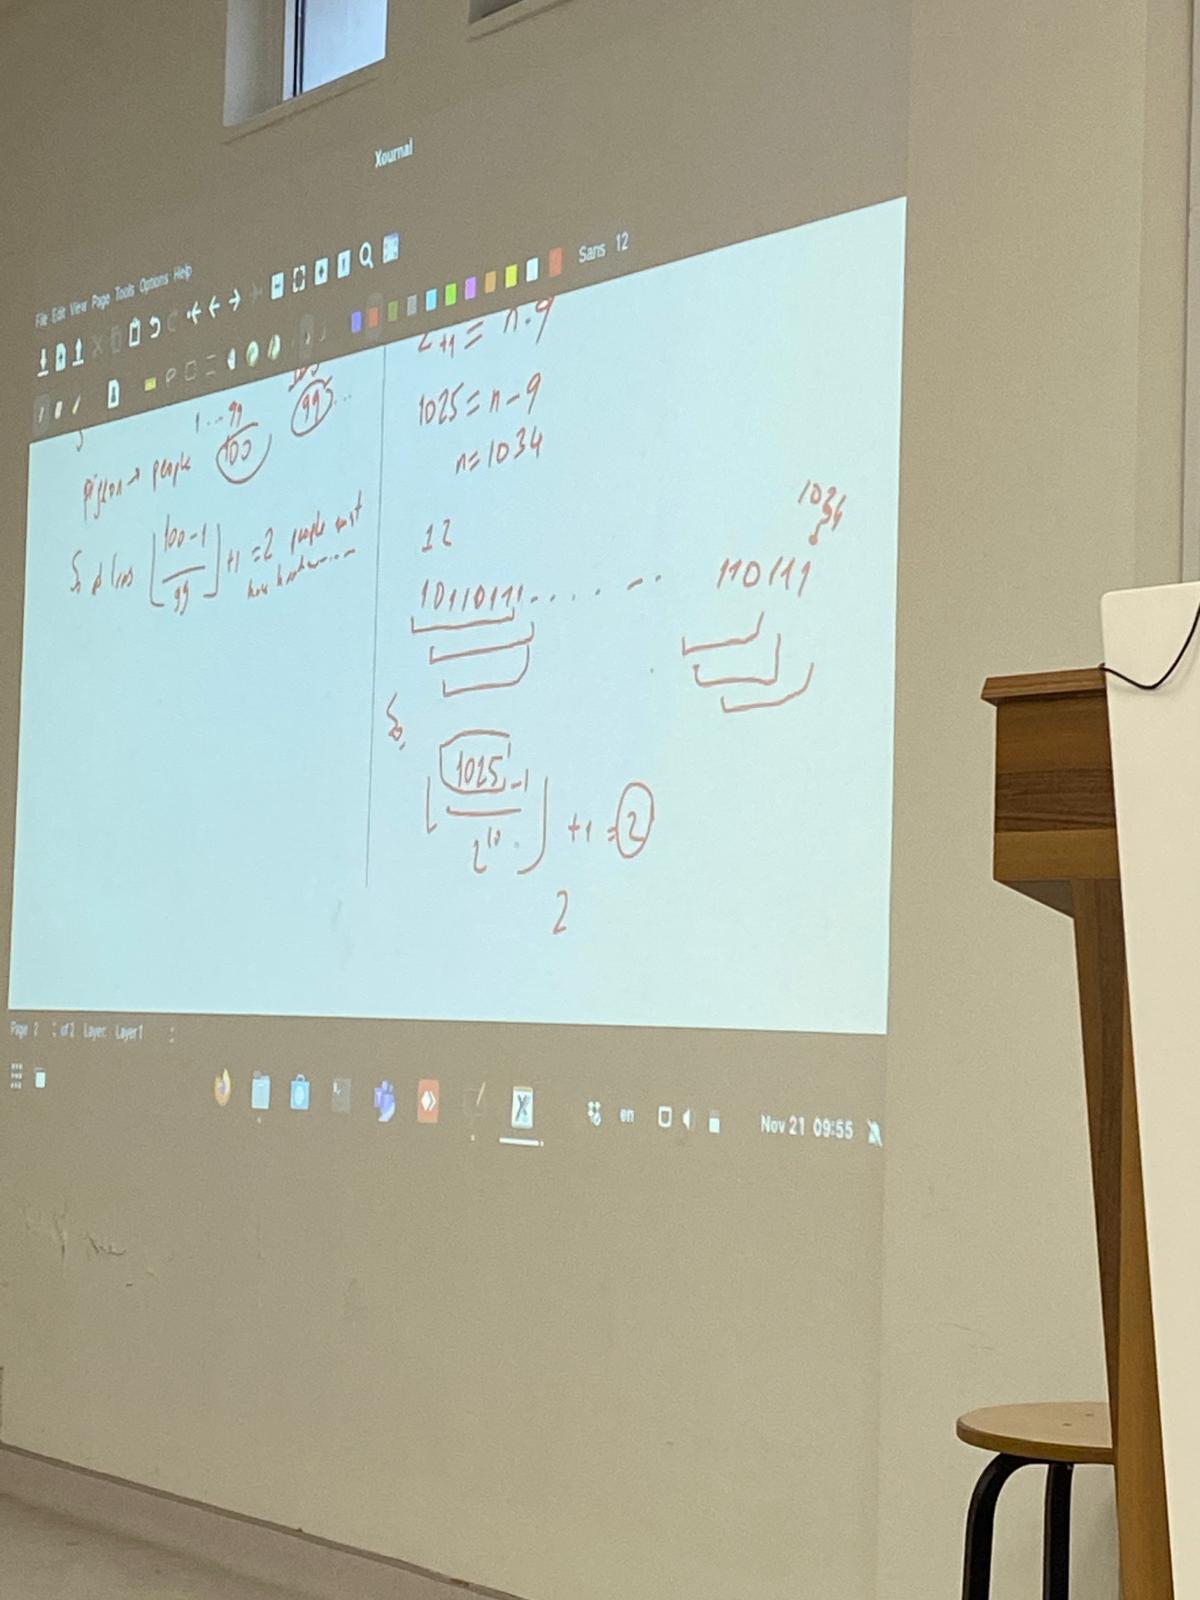 Xournal
File Edit View Page Tools Options Help
Sans 12
1...99
100
99...
pigeon → people
So at least ⌊(100-1)/99⌋ +1 = 2 people must
have
+1 = n-9
1025 = n-9
n = 1034
12
10110111..... -.. 110111
1034
So,
⌊(1025-1)/2^10⌋ +1 = 2
2
Page 2 of 2 Layer: Layer 1
en
Nov 21 09:55